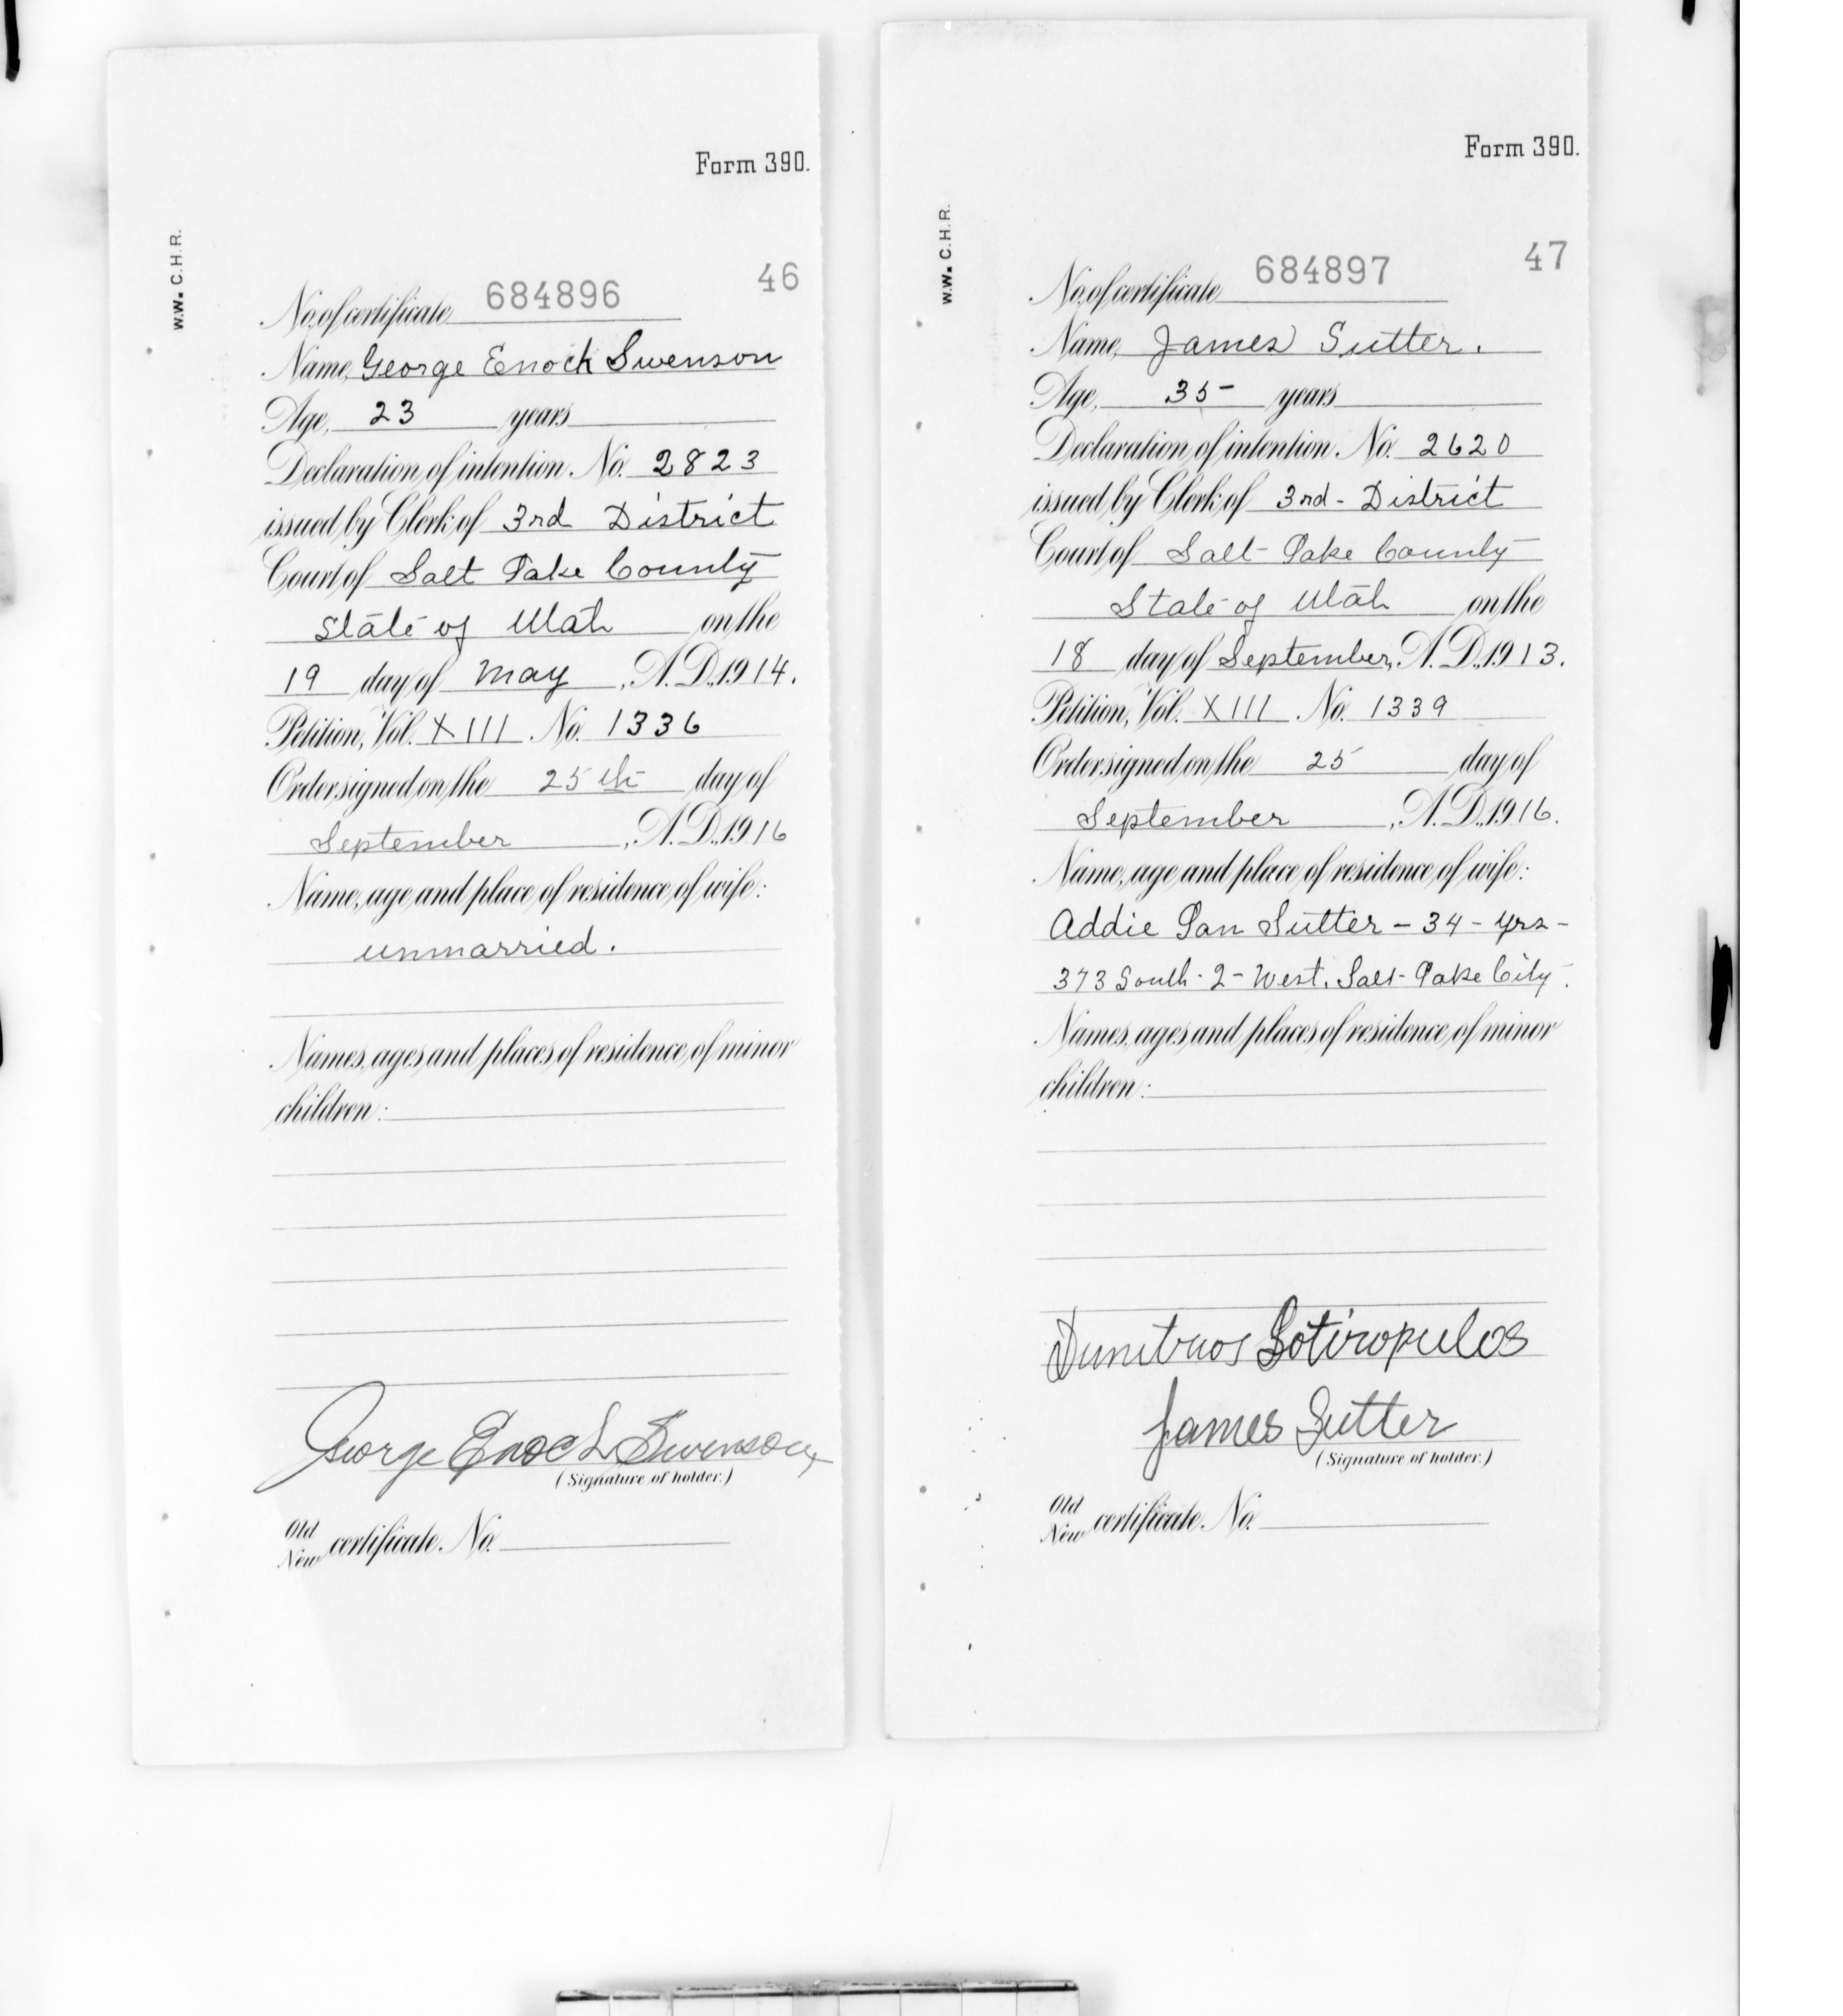 Form 390.
W.W. C.H.R.
46
No. of certificate 684896
Name, George Enoch Swenson
Age, 23 years
Declaration of intention. No. 2823
issued by Clerk of 3rd District
Court of Salt Lake County
State of Utah on the
19 day of May, A.D., 1914.
Petition, Vol. XIII. No. 1336
Order signed on the 25th day of
September, A.D., 1916
Name, age and place of residence of wife:
unmarried.
Names, ages and places of residence of minor
children:
George Enoch Swenson
(Signature of holder.)
Old
New certificate. No.
Form 390.
W.W. C.H.R.
47
No. of certificate 684897
Name, James Sutter.
Age, 35- years
Declaration of intention. No. 2620
issued by Clerk of 3rd - District
Court of Salt Lake County
State of Utah on the
18 day of September, A.D., 1913.
Petition, Vol. XIII. No. 1339
Order signed on the 25 day of
September, A.D., 1916.
Name, age and place of residence of wife:
Addie Sutter - 34 - yrs -
373 South - 2 - West. Salt - Lake City.
Names, ages and places of residence of minor
children:
Sotiropulos
James Sutter
(Signature of holder.)
Old
New certificate. No.